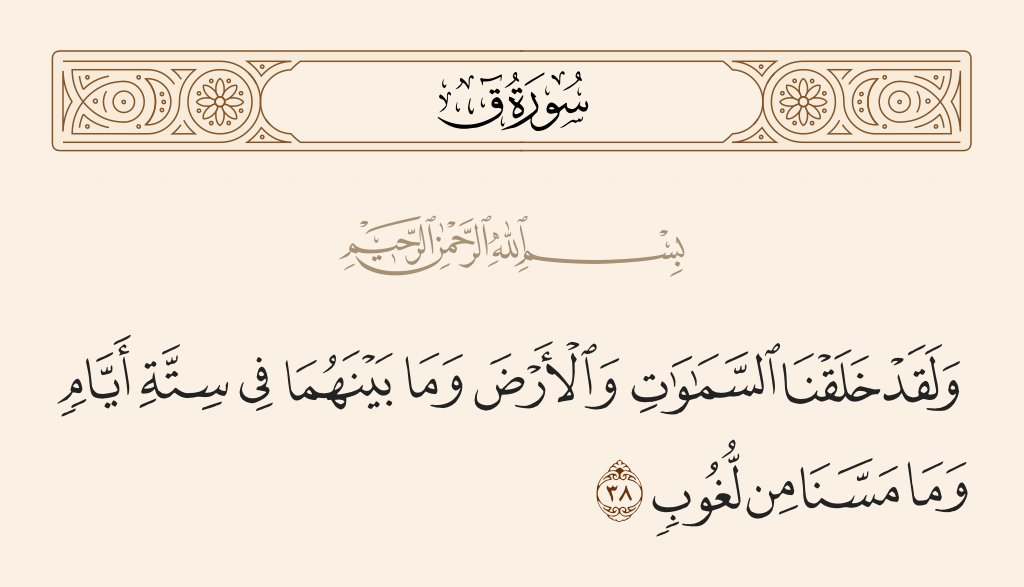 سُورَةُ قٓ
بِسْمِ ٱللَّهِ ٱلرَّحْمَٰنِ ٱلرَّحِيمِ
وَلَقَدْ خَلَقْنَا ٱلسَّمَٰوَٰتِ وَٱلْأَرْضَ وَمَا بَيْنَهُمَا فِى سِتَّةِ أَيَّامٍ
وَمَا مَسَّنَا مِن لُّغُوبٍ ٣٨